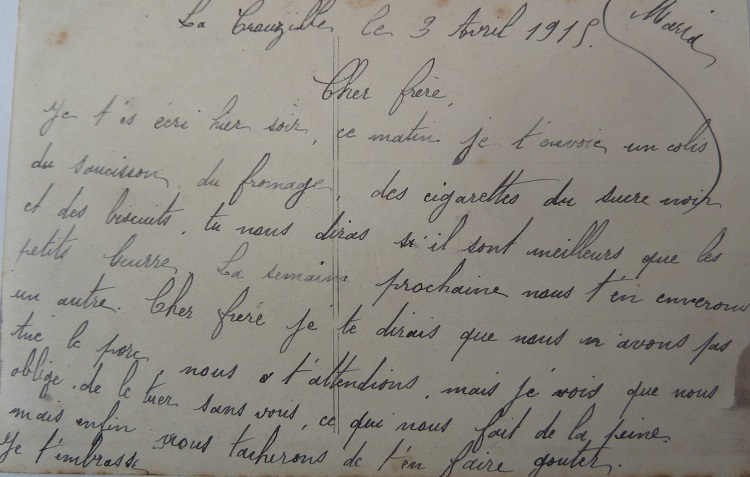 La Crouzille le 3 Avril 1915.
Maria
Cher frère,
Je t'es écri hier soir, ce matin je t'envoie un colis
du saucisson, du fromage, des cigarettes du sucre noir
et des biscuits, tu nous diras si il sont meilleurs que les
petits beurre, La semaine prochaine nous t'en enverons
un autre. Cher frère je te dirais que nous n'avons pas
tué le porc, nous t'attendions, mais je vois que nous
oblige de le tuer sans vous, ce qui nous fait de la peine
mais enfin nous tacherons de t'en faire gouter.
Je t'embrasse